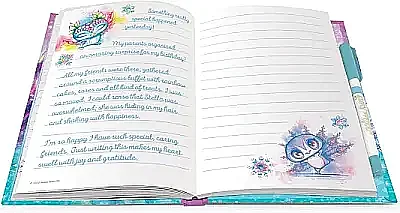 Something really
special happened
yesterday!
My parents organised
an amazing surprise for my birthday!
All my friends were there, gathered
around a scrumptious buffet with rainbow
cakes, roses and all kind of treats. I was
so moved. I could sense that Stella was
overwhelmed, she was hiding in my hair,
and shaking with happiness.
I'm so happy I have such special, caring
friends. Just writing this makes my heart
swell with joy and gratitude.